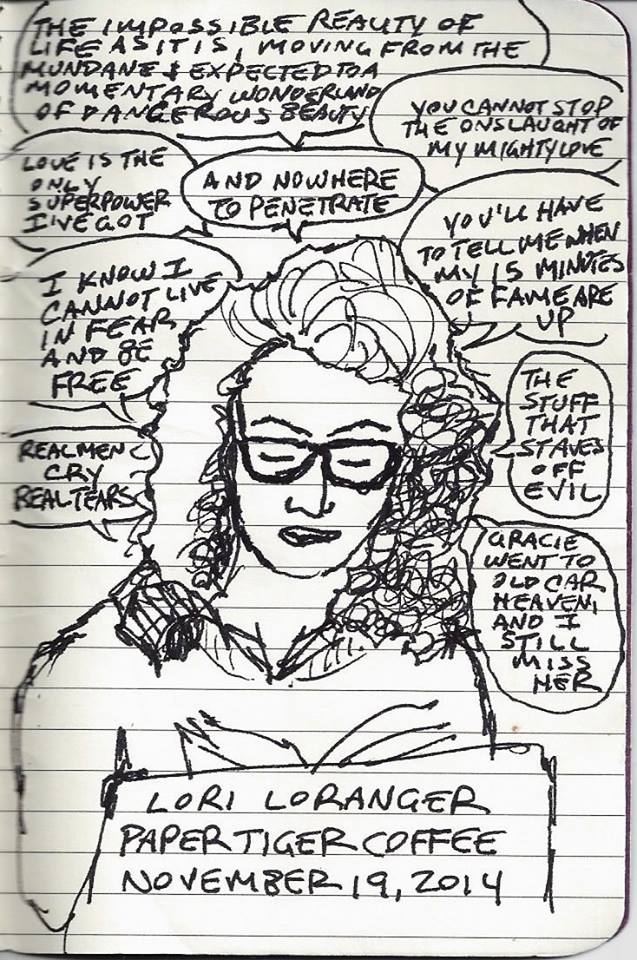 THE IMPOSSIBLE REALITY OF
LIFE AS IT IS, MOVING FROM THE
MUNDANE & EXPECTED TO A
MOMENTARY WONDERLAND
OF DANGEROUS BEAUTY
YOU CANNOT STOP
THE ONSLAUGHT OF
MY MIGHTY LOVE
LOVE IS THE
ONLY
SUPERPOWER
I'VE GOT
AND NOWHERE
TO PENETRATE
YOU'LL HAVE
TO TELL ME WHEN
MY 15 MINUTES
OF FAME ARE
UP
I KNOW I
CANNOT LIVE
IN FEAR
AND BE
FREE
THE
STUFF
THAT
STAVES
OFF
EVIL
REAL MEN
CRY
REAL TEARS
GRACIE
WENT TO
OLD CAR
HEAVEN,
AND I
STILL
MISS
HER
LORI LORANGER
PAPER TIGER COFFEE
NOVEMBER 19, 2014